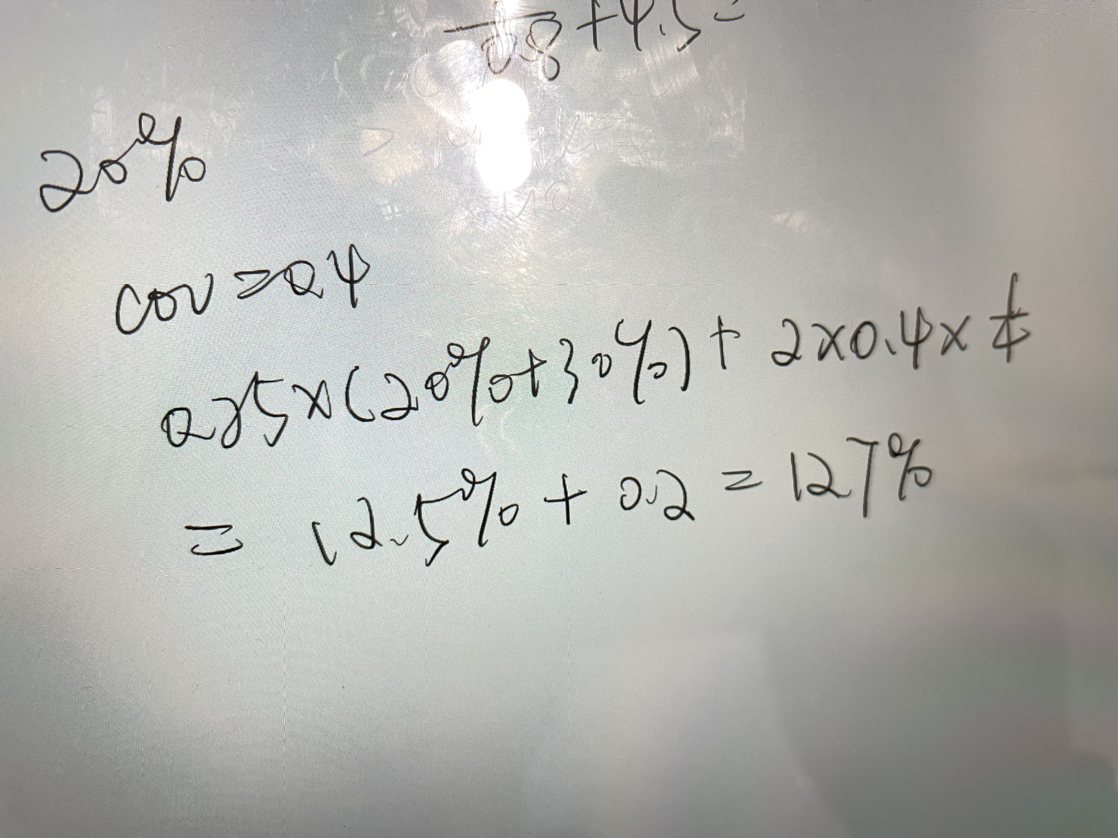 0.8 + 4.5 =
20%
cov = 0.4
0.25 × (20% + 30%) + 2 × 0.4 × ¼
= 12.5% + 0.2 = 127%